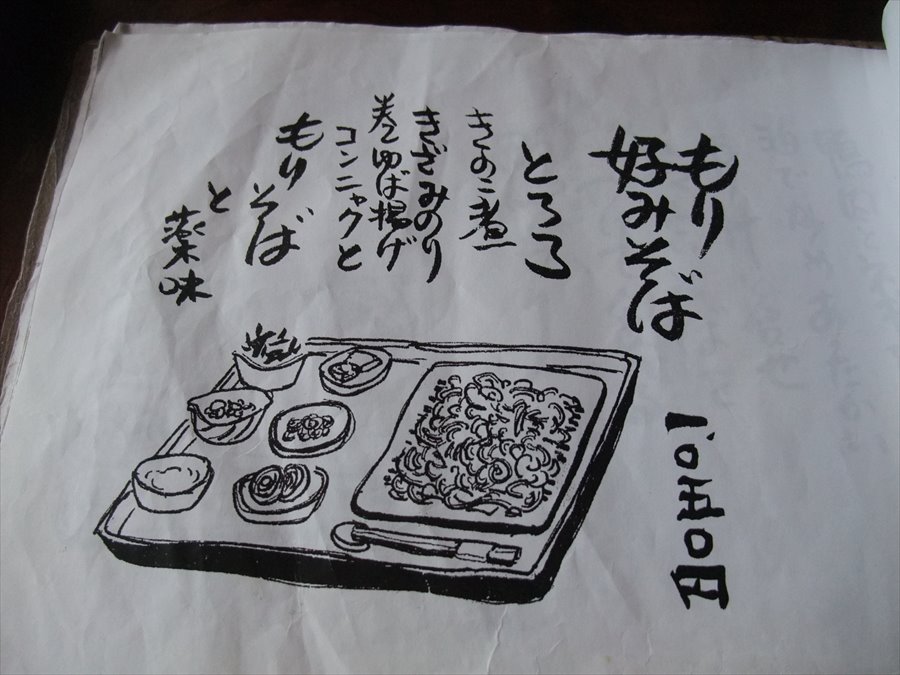 もり
好みそば
1,0五0円
とろろ
きのこ煮
きざみのり
巻ゆば揚げ
コンニャクと
もりそば
と薬味